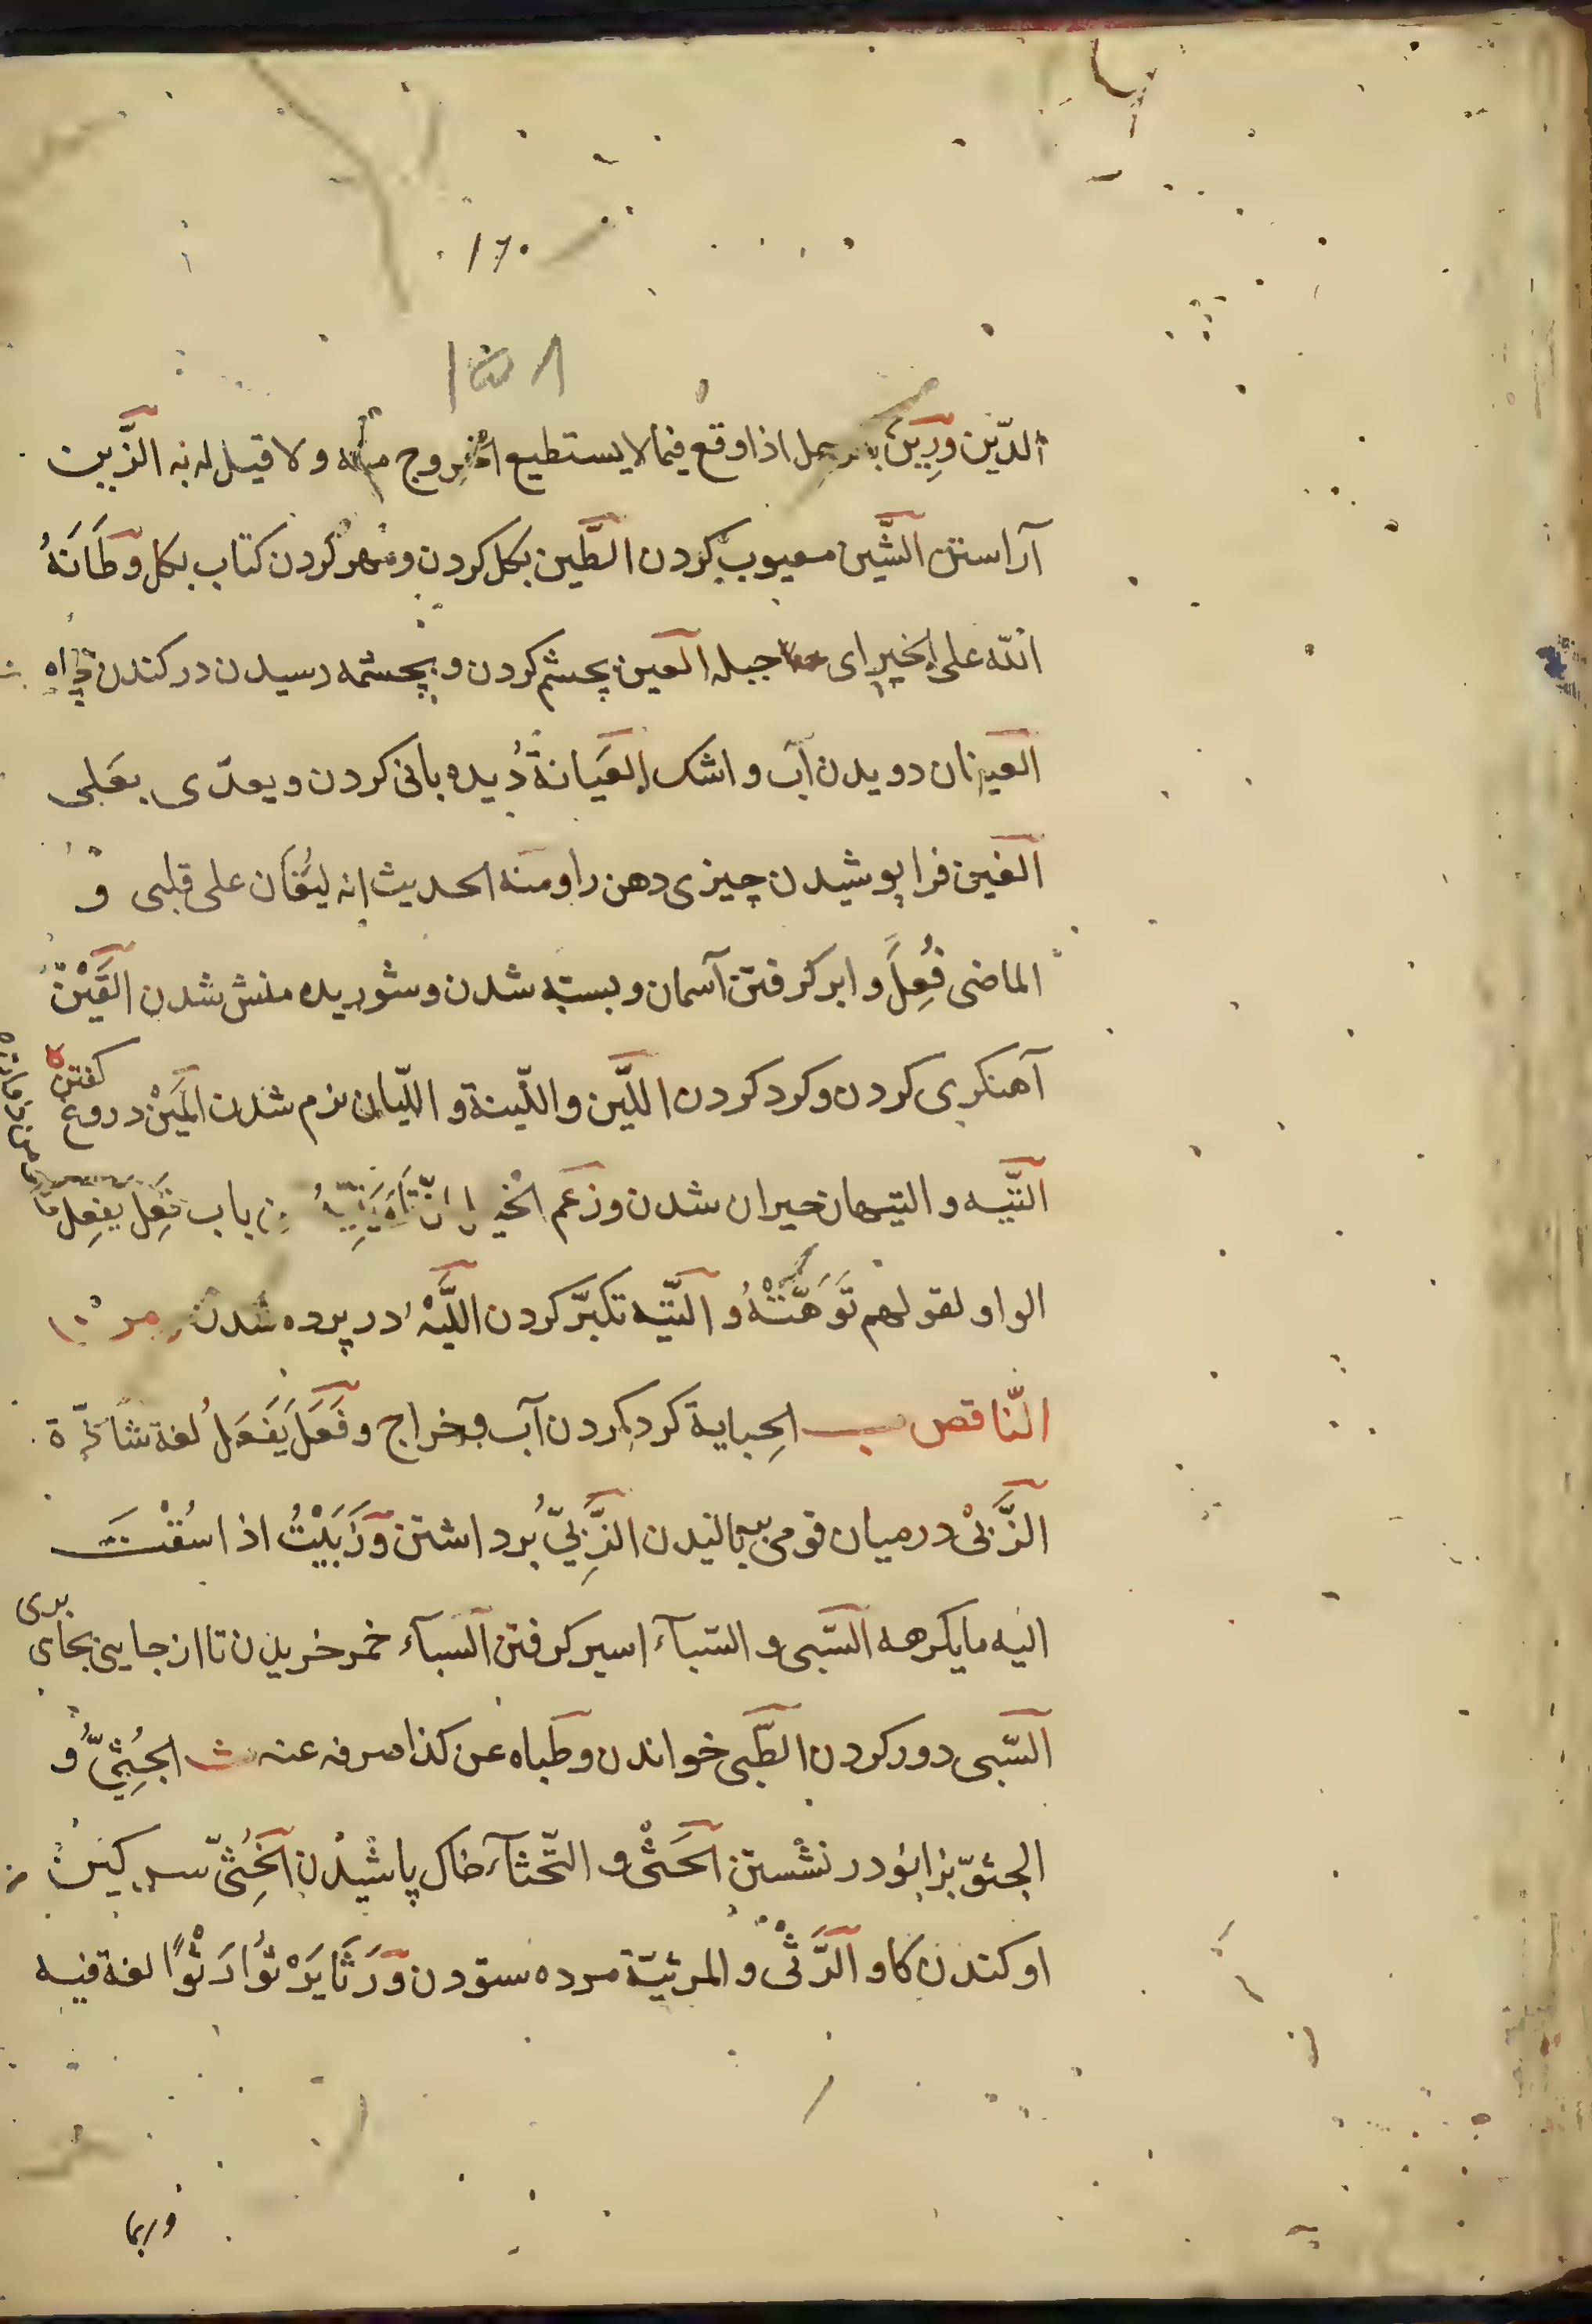 ١٦٠
١٥٨
الدّین ورِینَ بالرجل اذا وقع فیما لا یستطیع الخروج منه ولا قبل له به الزَّین
آراستن الشَّین معیوب کردن الطَّین بکل کردن ومهر کردن کتاب بکل وطَانَهُ
الله علی الخیر ای جبله العین بچشم کردن و بچشمه رسیدن در کندن چاه
العینان دویدن آب و اشک العَیَانة دُیده بانی کردن ویعدّی بعَلی
الغین فرا پوشیدن چیزی دهن را ومنه الحدیث انه لیُغَان علی قلبی و
الماضی فُعِلَ و ابر کرفتن آسمان و بسته شدن وشوریده منش شدن القَیْنُ
آهنکری کردن و کرد کردن اللَّین واللّینة و اللّیان نرم شدن المَیْن دروغ کفتن
التَّیه و التیهان حیران شدن وزعم الخلیل انّ تَاهَ یَتِیهُ من باب فَعِلَ یَفْعِلُ من
الواو لقولهم تَوَّهْتُهُ و التّیه تکبرّ کردن اللَّیْهُ در پرده شدن
النّاقص ب الجِبایة کرد کردن آب و خراج وفَعَلَ یَفْعَلُ لغة شاذّة
الزَّبْیُ در میان قومی ببالیدن الزِّبیّ برداشتن وزَابَیْتُ اذا سُقْتَ
الیه ما یکرهه السَّبی و السّبآء اسیر کرفتن السبآء خمر خریدن تا از جایی بجای بری
السّبی دور کردن الطَّبی خواندن وطباه عن کذا صرفه عنه ث الجُثِیُّ و
الجثوّ بزانو در نشستن الحَثْی و التّحثآء خاک پاشیدن الخِثْیّ سرکین
اوکندن کاو الرَّثْی و المرثیّة مرده ستودن ورَثَا یَرْثُوا رَثْوًا لغة فیه
وربما